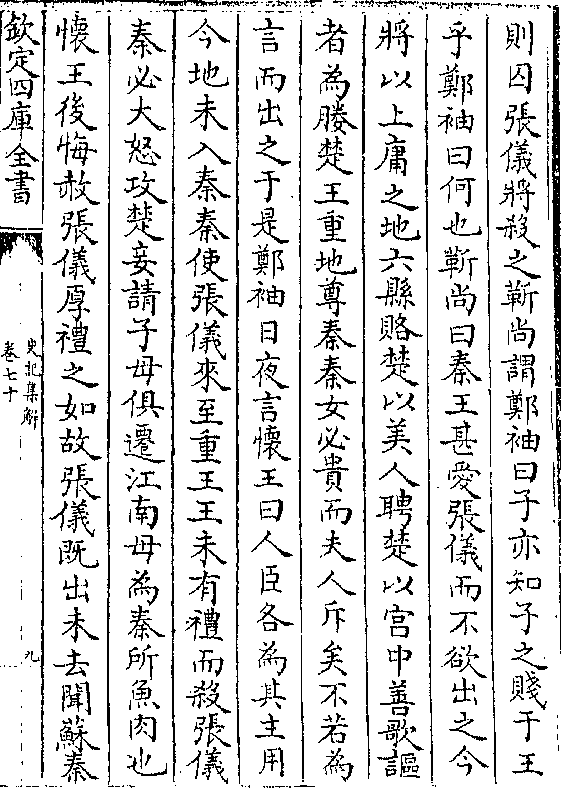 則囚張儀將殺之靳尚謂鄭袖曰子亦知子之賤于王
乎鄭袖曰何也靳尚曰秦王甚愛張儀而不欲出之今
將以上庸之地六縣賂楚以美人聘楚以宫中善歌謳
者為媵楚王重地尊秦秦女必貴而夫人斥矣不若為
言而出之于是鄭袖日夜言懐王曰人臣各為其主用
今地未入秦秦使張儀來至重王王未有禮而殺張儀
秦必大怒攻楚妾請子母俱遷江南毋為秦所魚肉也
懐王後悔赦張儀厚禮之如故張儀既出未去聞蘇秦
欽定四庫全書
史記集解
卷七十
九